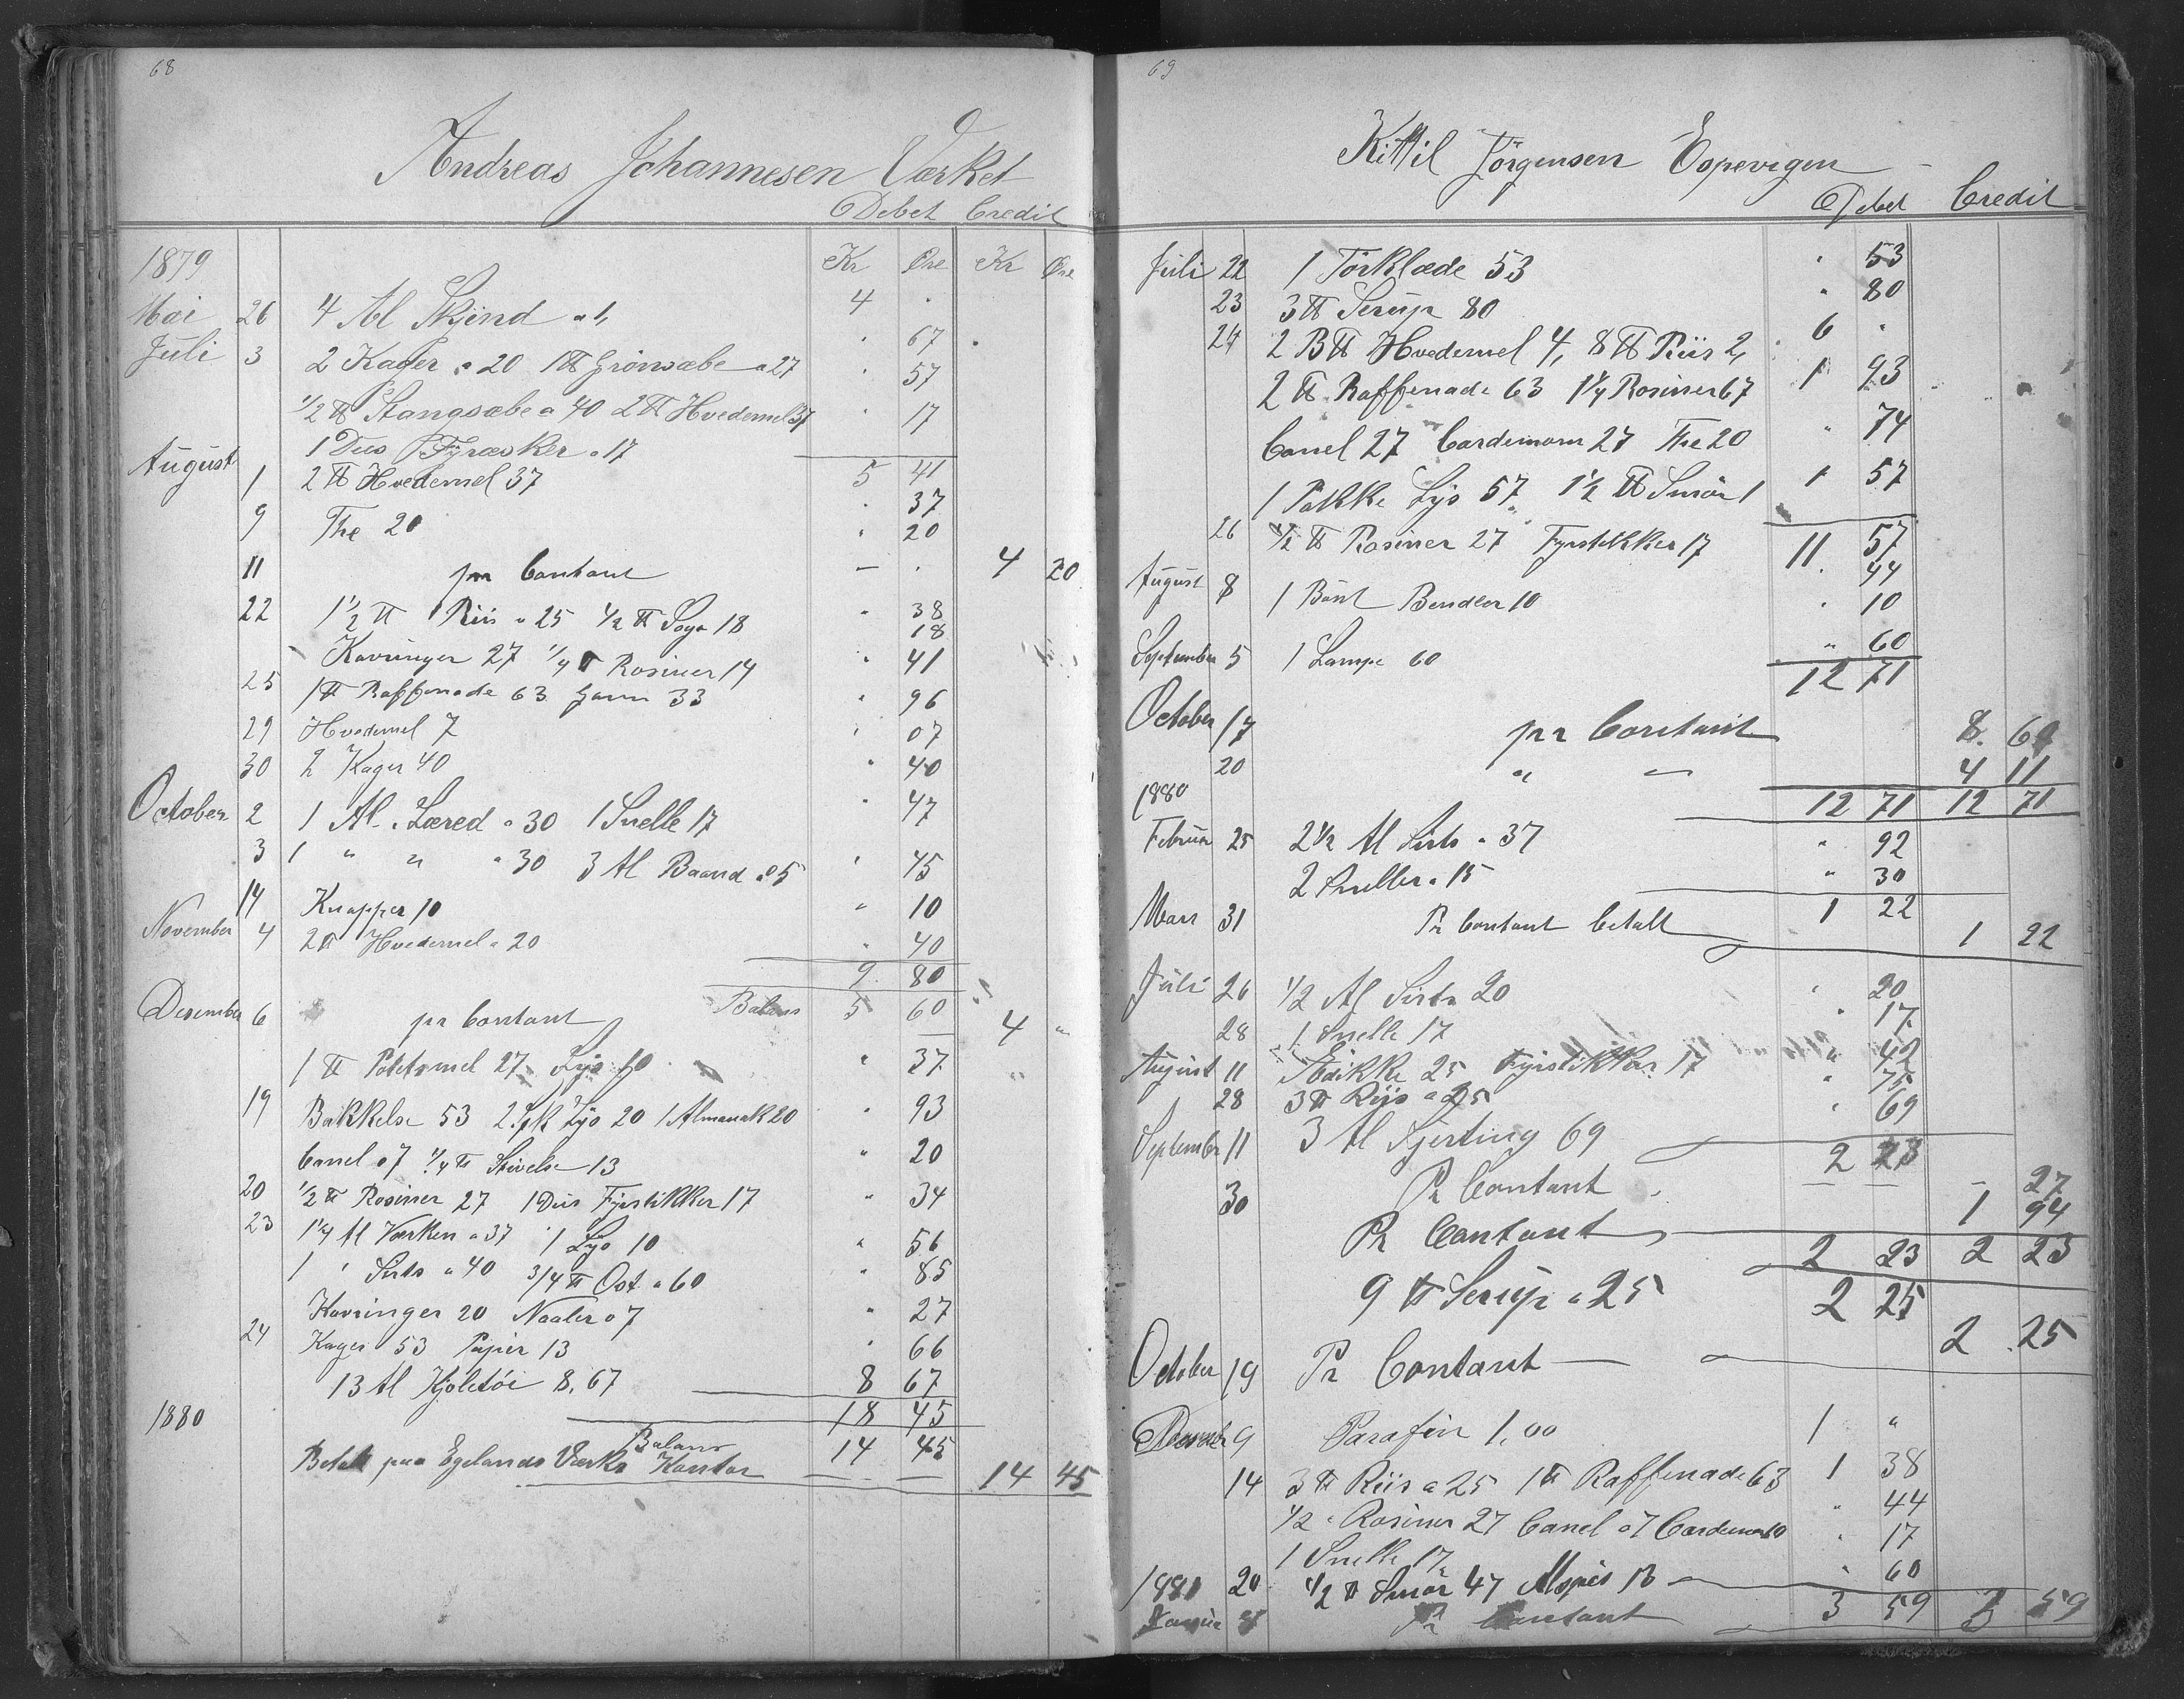 68
Andreas Johannesen Værket
Debet Credit
1879 Kr Øre Kr Øre
Mai 26 4 Al Skjend a 1, 4 "
Juli 3 2 Kager a 20 1 ℔ Grönsæbe a 27 " 67
1/2 ℔ Stangsæbe a 40 2 ℔ Hvedemel 37 " 57
1 Dus Fyræsker a 17 " 17
August 5 41
1 2 ℔ Hvedemel 37 " 37
9 The 20 " 20
11 pr Contant — " 4 20
22 1 1/2 ℔ Riis a 25 1/2 ℔ Sago 18 " 38
18
Kavringer 27 1/4 ℔ Rosiner 14 " 41
25 1 ℔ Raffenade 63 Garn 33 " 96
29 Hvedemel 7 " 07
30 2 Kager 40 " 40
October 2 1 Al Læred a 30 1 Snelle 17 " 47
3 1 " " a 30 3 Al Baand a 5 " 45
14 Knapper 10 " 10
November 4 2 ℔ Hvedemel a 20 " 40
9 80
Balans 5 60
Desember 6 pr Contant — 4 "
1 ℔ Potetsmel 27 Lys 10 " 37
19 Bakkelse 53 2 Spk Lys 20 1 Almanak 20 " 93
Canel 07 1/4 ℔ Stivelse 13 " 20
20 1/2 ℔ Rosiner 27 1 Dus Fyrstikker 17 " 34
23 1 1/4 Al Værken a 37 1 Lys 10 " 56
1 " Sirts a 40 3/4 ℔ Ost a 60 " 85
Kavringer 20 Naaler 07 " 27
24 Kager 53 Papir 13 " 66
13 Al Kjoletöi 8,67 8 67
1880 18 45
Balans 14 45
Betalt paa Egelands Værks Kontor — — 14 45
69
Kittil Jörgensen Espevigen
Debet Credit
Juli 22 1 Törklæde 53 " 53
23 3 ℔ Serup 80 " 80
24 2 B℔ Hvedemel 4, 8 ℔ Riis 2, 6 "
2 ℔ Raffenade 63 1 1/4 Rosiner 67 1 93
Canel 27 Cardemom 27 The 20 " 74
1 Pakke Lys 57 1 1/2 ℔ Smör 1 1 57
26 1/2 ℔ Rosiner 27 Fyrstikker 17 11 57
44
August 8 1 Bunt Bendler 10 " 10
September 5 1 Lampe 60 " 60
12 71
October 17 pr Contant 8. 60
20 " " 4 11
1880 12 71 12 71
Februar 25 2 1/2 Al Sirts a 37 " 92
2 Sneller a 15 " 30
Mars 31 Pr Contant betalt 1 22
1 22
Juli 26 1/2 Al Sirts 20 " 20
28 1 Snelle 17 " 17
August 11 Eddikke 25 Fyrstikker 17 " 42
28 3 ℔ Riis a 25 " 75
September 11 3 Al Sjerting 69 " 69
2 23
Pr Contant — — - 27
30 Pr Contant 1 94
2 23 2 23
9 ℔ Serup a 25 2 25
October 19 Pr Contant — 2 25
Desember 9 Parafin 1,00 1 "
14 3 ℔ Riis a 25 1 ℔ Raffenade 63 1 38
1/2 " Rosiner 27 Canel 07 Cardemom 10 " 44
1 Snelle 17 " 17
20 1/2 ℔ Smör 47 Alspis 13 " 60
1881
Januar Pr Contant 3 59 3 59